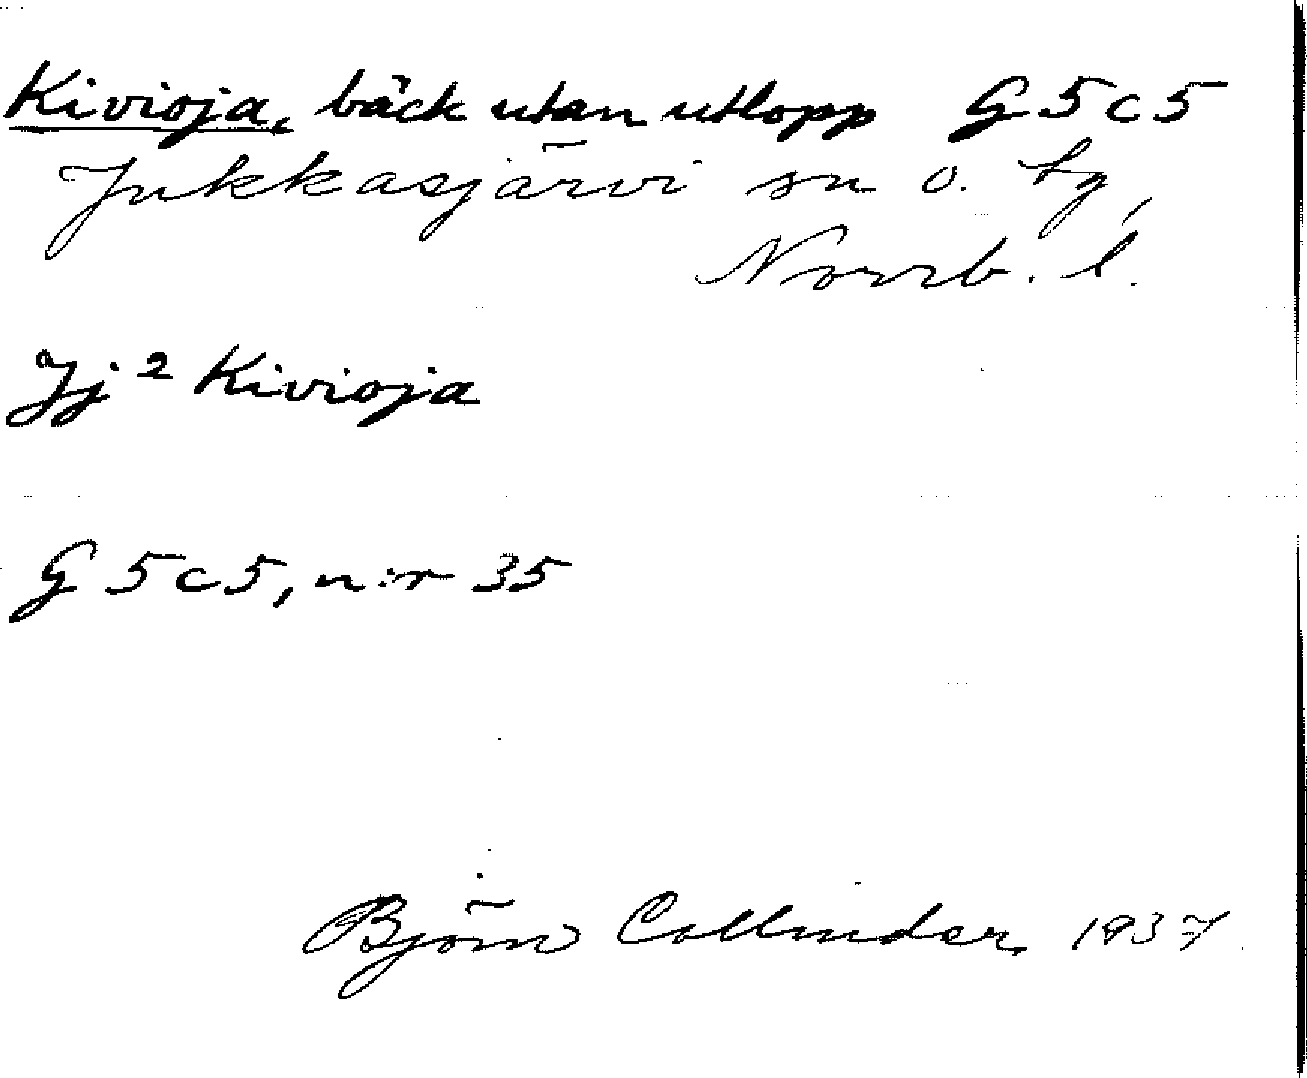 Kivioja, bäck utan utlopp G5c5
Jukkasjärvi sn o. tg,
Norrb. l.
Jj 2 Kivioja
G 5c5, n:r 35
Björn Collinder 1937